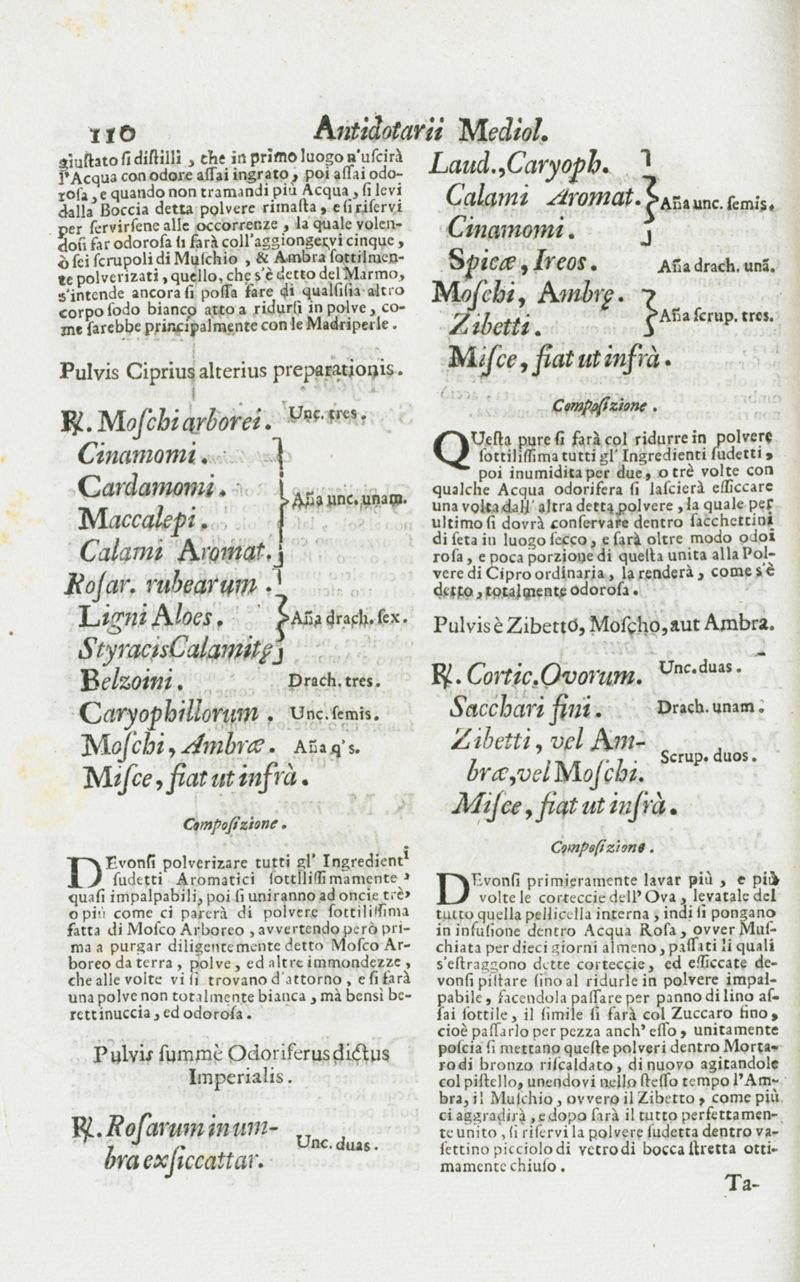 110 Antidotarii Mediol.
giuſtato ſi diſtilli , che in primo luogo n'uſcirà
l'Acqua con odore aſſai ingrato , poi aſſai odo-
roſa , e quando non tramandi più Acqua , ſi levi
dalla Boccia detta polvere rimaſta , e ſi riſervi
per ſervirſene alle occorrenze , la quale volen-
doſi far odoroſa ſi farà coll'aggiongervi cinque ,
ò ſei ſcrupoli di Muſchio , & Ambra ſottilmen-
te polverizati , quello, che s'è detto del Marmo,
s'intende ancora ſi poſſa fare di qualſiſia altro
corpo ſodo bianco atto a ridurſi in polve , co-
me ſarebbe principalmente con le Madriperle .
Pulvis Ciprius alterius preparationis.
℞. Moſchi arborei. Unc. tres.
Cinamomi.
Cardamomi. Aña unc. unam.
Maccalepi.
Calami Aromat.
Roſar. rubearum .
Ligni Aloes. Aña drach. ſex.
Styracis Calamitę
Belzoini. Drach. tres.
Caryophillorum . Unc. ſemis.
Moſchi, Ambræ. Aña q's.
Miſce, fiat ut infrà.
Compoſizione .
DEvonſi polverizare tutti gl' Ingredienti
ſudetti Aromatici ſottiliſſimamente ,
quaſi impalpabili, poi ſi uniranno ad oncie trè,
o più come ci parerà di polvere ſottiliſſima
fatta di Moſco Arboreo , avvertendo però pri-
ma a purgar diligentemente detto Moſco Ar-
boreo da terra , polve , ed altre immondezze ,
che alle volte vi ſi trovano d'attorno , e ſi farà
una polve non totalmente bianca , mà bensì be-
rettinuccia , ed odoroſa .
Pulvis ſummè Odoriferus dictus
Imperialis.
℞. Roſarum in um-
bra exſiccattar. Unc. duas.
Laud., Caryoph.
Calami Aromat. Aña unc. ſemis.
Cinamomi.
Spicæ, Ireos. Aña drach. unã.
Moſchi, Ambrę.
Zibetti. Aña ſcrup. tres.
Miſce, fiat ut infrà.
Compoſizione .
QUeſta pure ſi farà col ridurre in polvere
ſottiliſſima tutti gl' Ingredienti ſudetti ,
poi inumidita per due, o trè volte con
qualche Acqua odorifera ſi laſcierà eſſiccare
una volta dall' altra detta polvere , la quale per
ultimo ſi dovrà conſervare dentro ſacchettini
di ſeta in luogo ſecco , e ſarà oltre modo odoi
roſa , e poca porzione di queſta unita alla Pol-
vere di Cipro ordinaria , la renderà , come s'è
detto , totalmente odoroſa .
Pulvis è Zibetto, Moſcho, aut Ambra.
℞. Cortic. Ovorum. Unc. duas.
Sacchari fini. Drach. unam.
Zibetti, vel Am-
bræ, vel Moſchi. Scrup. duos.
Miſce, fiat ut infrà.
Compoſizione .
DEvonſi primieramente lavar più , e più
volte le corteccie dell' Ova , levatale del
tutto quella pellicella interna , indi ſi pongano
in infuſione dentro Acqua Roſa , ovver Muſ-
chiata per dieci giorni almeno, paſſati li quali
s'eſtraggono dette corteccie, ed eſſiccate de-
vonſi piſtare ſino al ridurle in polvere impal-
pabile , facendola paſſare per panno di lino aſ-
ſai ſottile , il ſimile ſi farà col Zuccaro fino ,
cioè paſſarlo per pezza anch' eſſo , unitamente
poſcia ſi mettano queſte polveri dentro Morta-
ro di bronzo riſcaldato , di nuovo agitandole
col piſtello, unendovi nello ſteſſo tempo l'Am-
bra, il Muſchio , ovvero il Zibetto , come più
ci aggradirà , e dopo ſarà il tutto perfettamen-
te unito , ſi riſervi la polvere ſudetta dentro va-
ſettino picciolo di vetro di bocca ſtretta otti-
mamente chiuſo .
Ta-